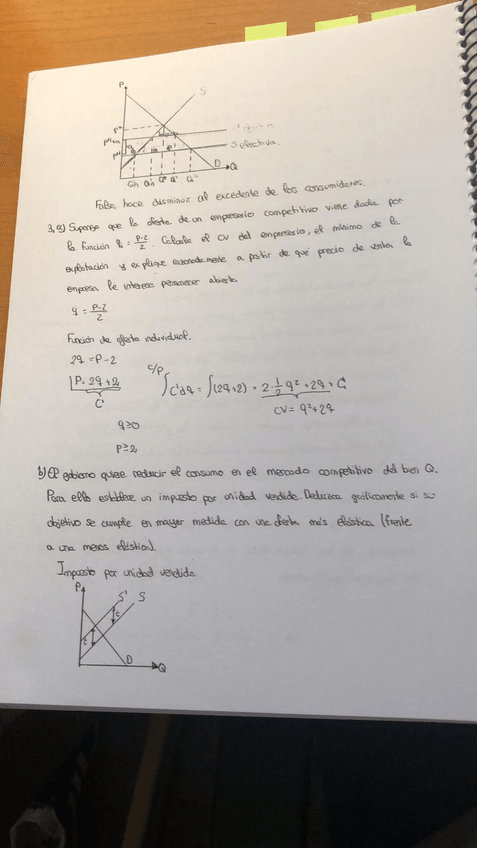 P
S
P*
S efectiva
D
Q
Falso, hace disminuir al excedente de los consumidores.
3, a) Suponga que la oferta de un empresario competitivo viene dada por
la función q = P-2/2. Calcule el CV del empresario, el mínimo de la
explotación y explique razonadamente a partir de qué precio de venta la
empresa le interesa permanecer abierta
q = P-2/2
Función de oferta individual.
2q = P-2
P = 2q+2
C'
C/P
∫C'dq = ∫(2q+2) = 2·1/2 q² + 2q + C
CV = q²+2q
q≥0
P≥2
b) El gobierno quiere reducir el consumo en el mercado competitivo del bien Q.
Para ello establece un impuesto por unidad vendida. Deduzca gráficamente si su
objetivo se cumple en mayor medida con una oferta más elástica (frente
a una menos elástica).
Impuesto por unidad vendida
P
S' S
t
t
D
Q